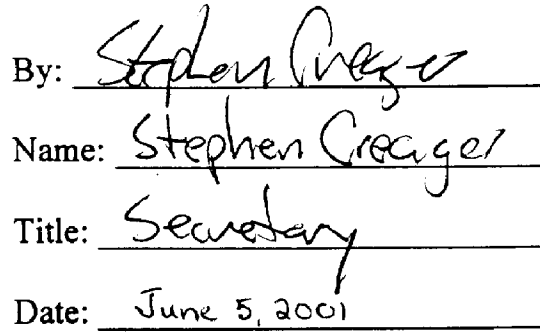 By: Stephen Creager
Name: Stephen Creager
Title: Secretary
Date: June 5, 2001